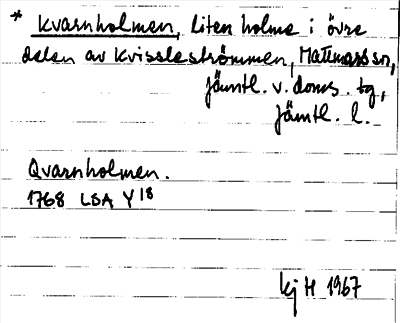 * Kvarnholmen, liten holme i övre
delen av Kvisslesströmmen, Mattmars sn,
Jämtl. v. doms. tg,
Jämtl. l.
Qvarnholmen.
1768 LSA Y18
kj H 1967